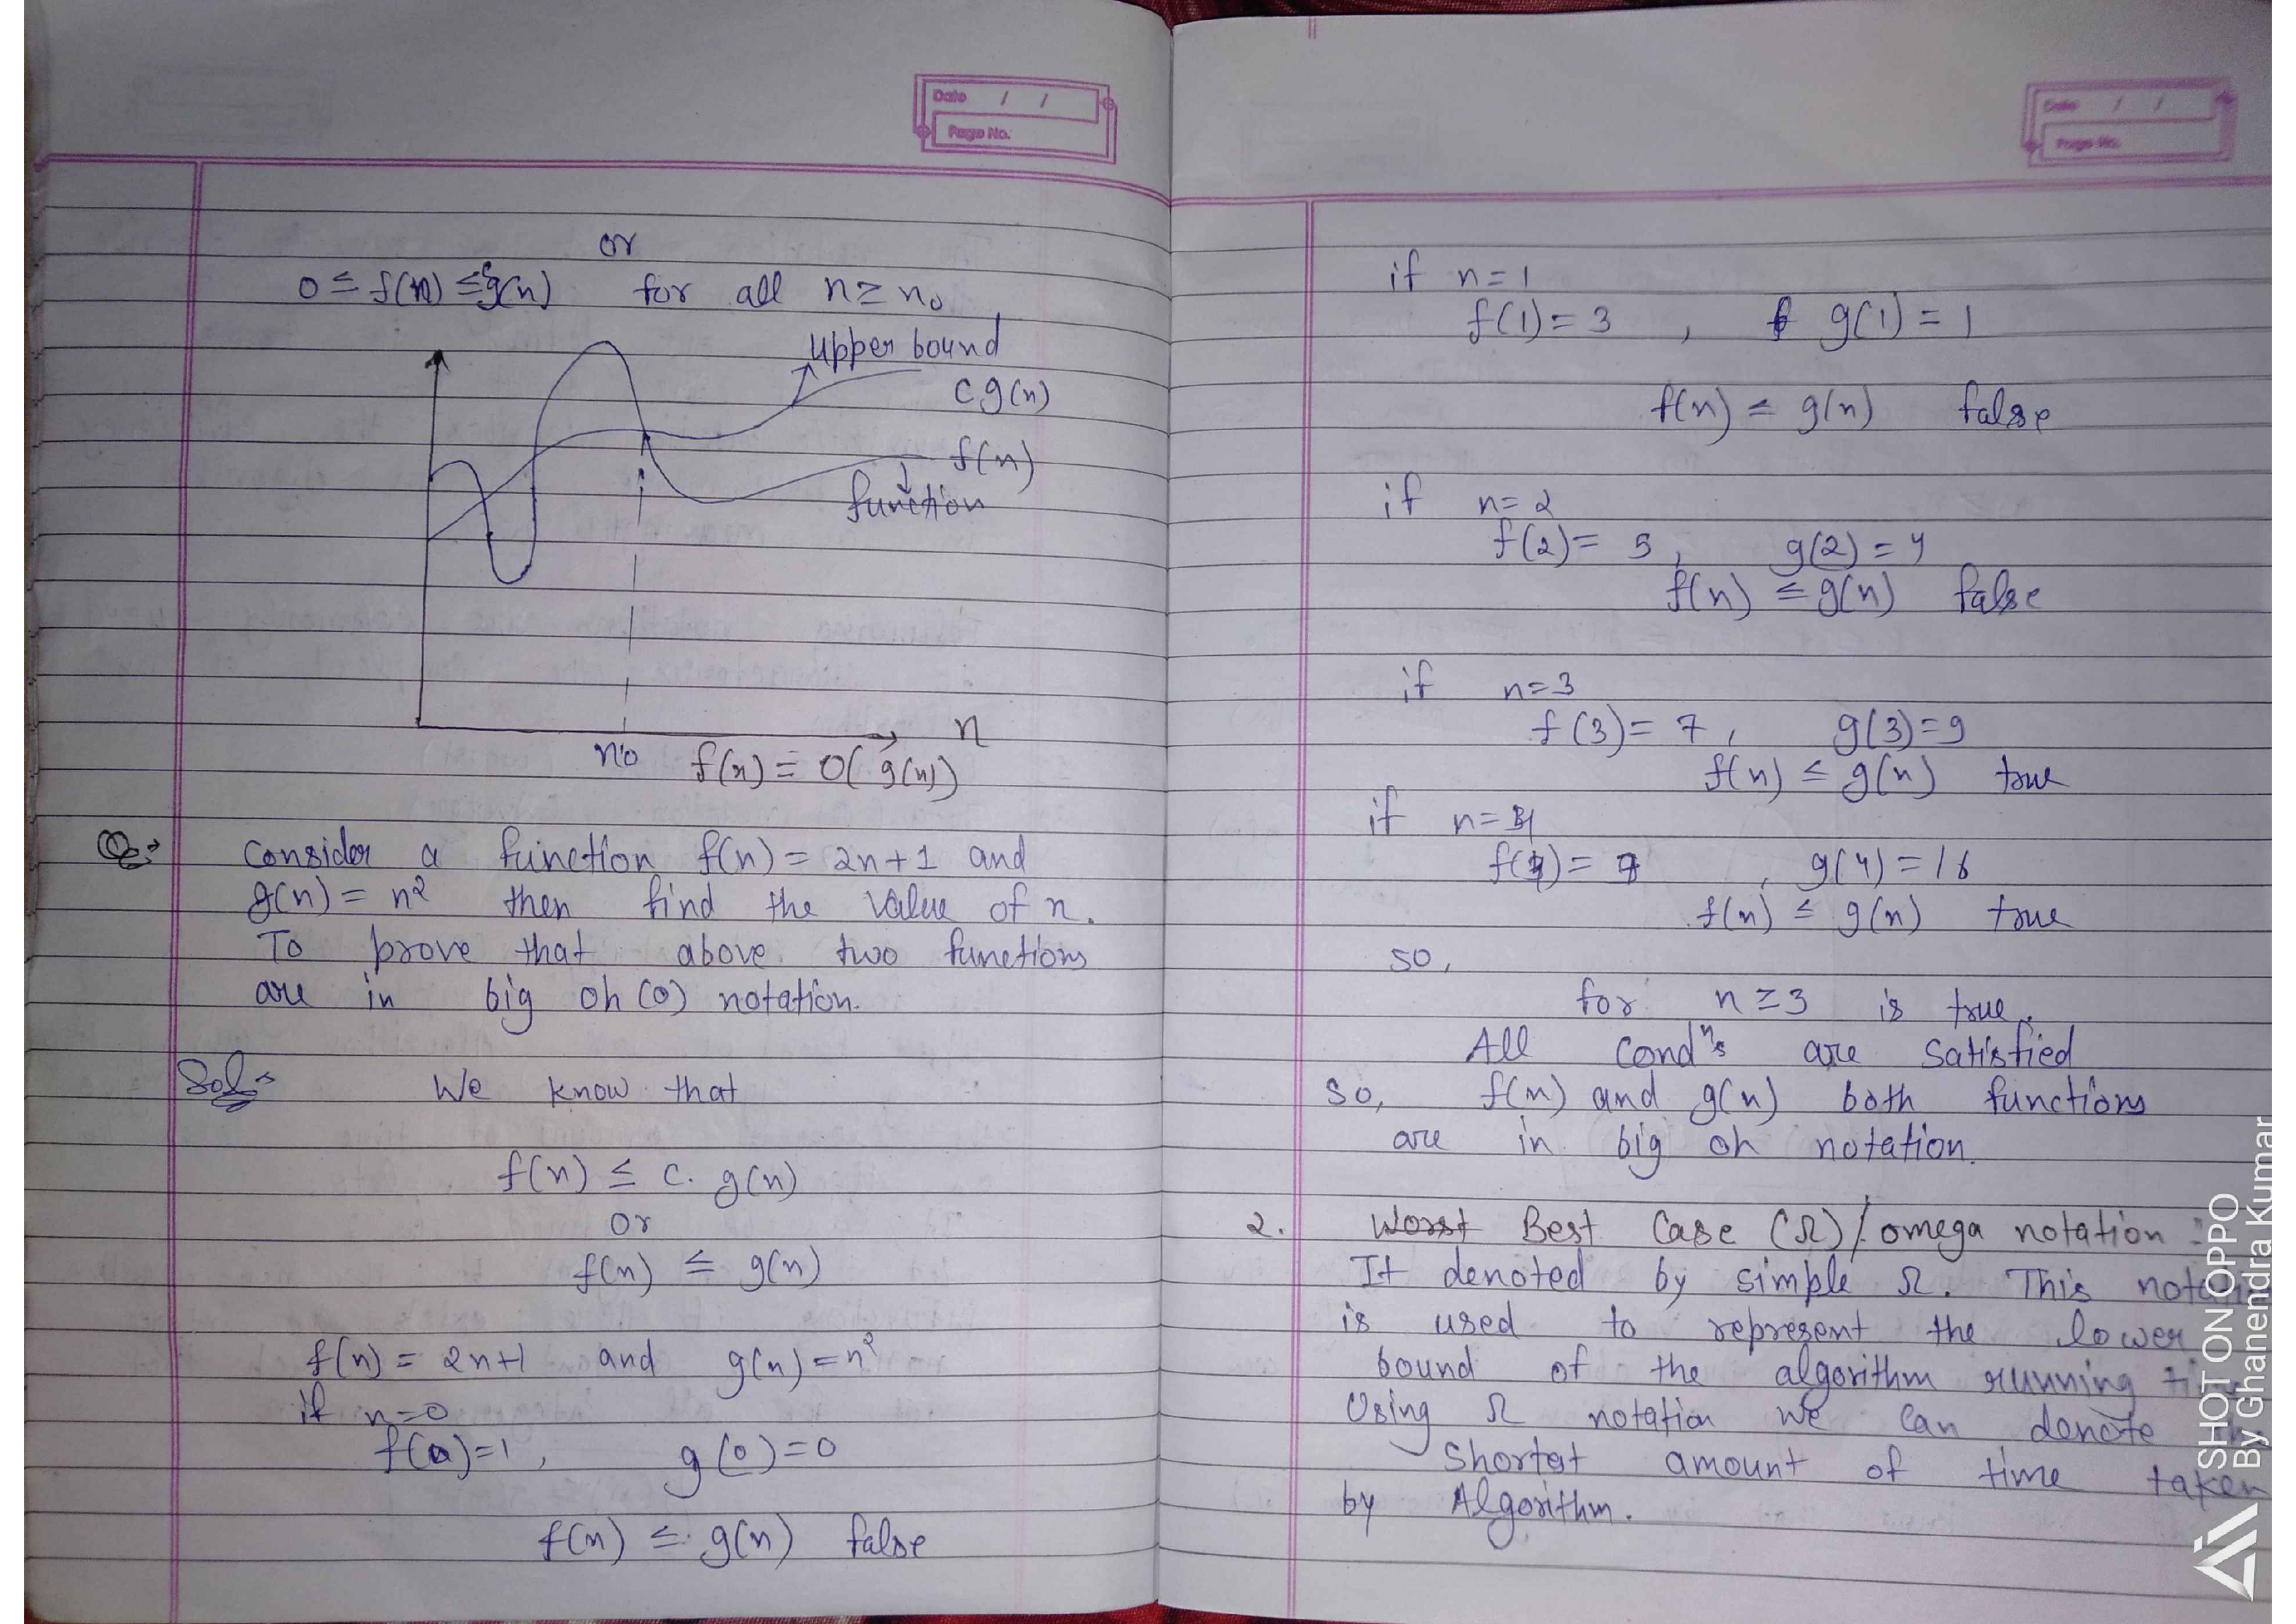 Date / /
Page No.
or
0 ≤ f(n) ≤ cg(n) for all n ≥ n₀
upper bound
c g(n)
f(n)
function
n
n₀ f(n) = O(g(n))
Q:→ Consider a function f(n) = 2n+1 and
g(n) = n² then find the value of n.
To prove that above two functions
are in big oh (O) notation.
Sol:- We know that
f(n) ≤ c. g(n)
or
f(n) ≤ g(n)
f(n) = 2n+1 and g(n) = n²
if n=0
f(0)=1, g(0)=0
f(n) ≤ g(n) false
Date / /
Page No.
if n=1
f(1)=3 , g(1) = 1
f(n) ≤ g(n) false
if n=2
f(2)= 5, g(2) = 4
f(n) ≤ g(n) false
if n=3
f(3)= 7, g(3)=9
f(n) ≤ g(n) true
if n=4
f(4)= 9 , g(4)=16
f(n) ≤ g(n) true
so,
for n ≥ 3 is true.
All condⁿs are satisfied
so, f(n) and g(n) both functions
are in big oh notation.
2. Worst Best Case (Ω) / omega notation :
It denoted by simple Ω. This
is used to represent the lower
bound of the algorithm running
Using Ω notation we can denote
shortest amount of time taken
by Algorithm.
SHOT ON OPPO
By Ghanendra Kumar